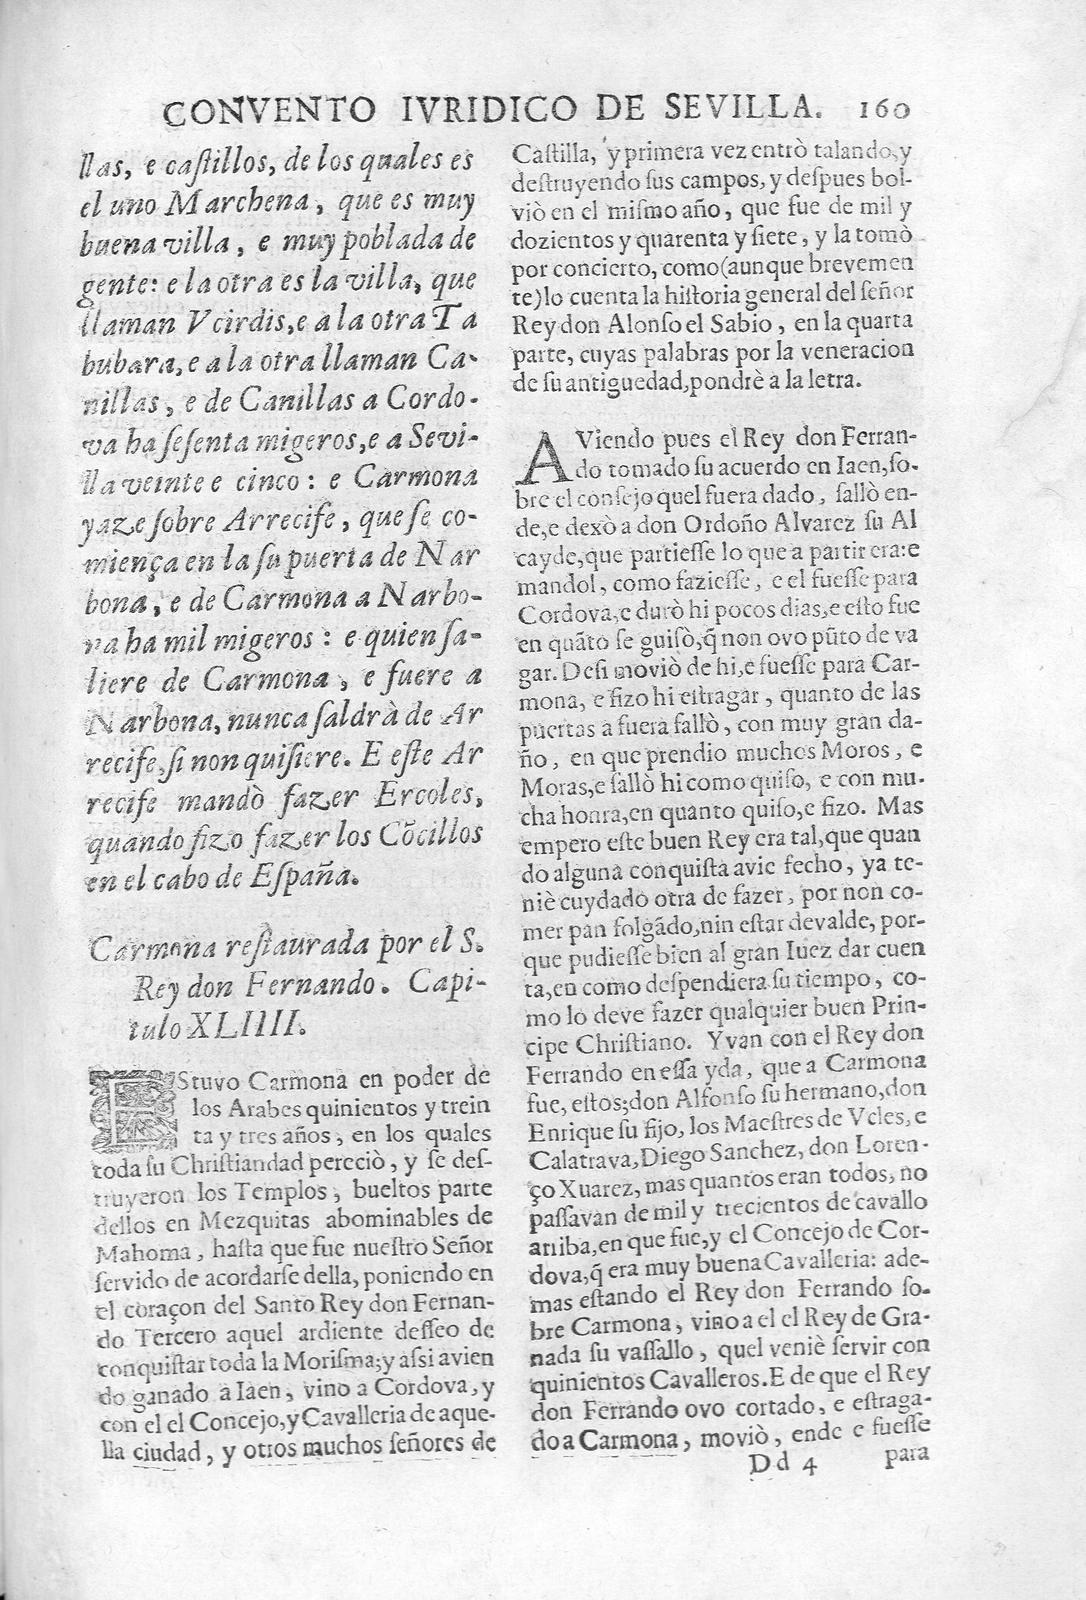 CONVENTO IVRIDICO DE SEVILLA. 160
llas, e castillos, de los quales es
el uno Marchena, que es muy
buena villa, e muy poblada de
gente: e la otra es la villa, que
llaman Vcirdis, e a la otra Ta
bubara, e a la otra llaman Ca-
nillas, e de Canillas a Cordo-
va ha sesenta migeros, e a Sevi-
lla veinte e cinco: e Carmona
yaze sobre Arrecife, que se co-
miença en la su puerta de Nar
bona, e de Carmona a Narbo-
na ha mil migeros: e quien sa-
liere de Carmona, e fuere a
Narbona, nunca saldrà de Ar
recife, si non quisiere. E este Ar
recife mandò fazer Ercoles,
quando fizo fazer los Cõcillos
en el cabo de España.
Carmona restaurada por el S.
Rey don Fernando. Capi-
tulo XLIIII.
EStuvo Carmona en poder de
los Arabes quinientos y trein
ta y tres años, en los quales
toda su Christiandad pereciò, y se des-
truyeron los Templos, bueltos parte
dellos en Mezquitas abominables de
Mahoma, hasta que fue nuestro Señor
servido de acordarse della, poniendo en
el coraçon del Santo Rey don Fernan-
do Tercero aquel ardiente desseo de
conquistar toda la Morisma; y assi avien
do ganado a Iaen, vino a Cordova, y
con el el Concejo, y Cavalleria de aque-
lla ciudad, y otros muchos señores de
Castilla, y primera vez entrò talando, y
destruyendo sus campos, y despues bol-
viò en el mismo año, que fue de mil y
dozientos y quarenta y siete, y la tomò
por concierto, como (aunque brevemen
te) lo cuenta la historia general del señor
Rey don Alonso el Sabio, en la quarta
parte, cuyas palabras por la veneracion
de su antiguedad, pondrè a la letra.
AViendo pues el Rey don Ferran-
do tomado su acuerdo en Iaen, so-
bre el consejo quel fuera dado, sallò en-
de, e dexò a don Ordoño Alvarez su Al
cayde, que partiesse lo que a partir era: e
mandol, como faziesse, e el fuesse para
Cordova, e durò hi pocos dias, e esto fue
en quãto se guisò, q̃ non ovo pũto de va
gar. Desi moviò de hi, e fuesse para Car-
mona, e fizo hi estragar, quanto de las
puertas a fuera fallò, con muy gran da-
ño, en que prendio muchos Moros, e
Moras, e fallò hi como quiso, e con mu-
cha honra, en quanto quiso, e fizo. Mas
empero este buen Rey era tal, que quan
do alguna conquista avie fecho, ya te-
niè cuydado otra de fazer, por non co-
mer pan folgãdo, nin estar devalde, por-
que pudiesse bien al gran Iuez dar cuen
ta, en como despendiera su tiempo, co-
mo lo deve fazer qualquier buen Prin-
cipe Christiano. Yvan con el Rey don
Ferrando en essa yda, que a Carmona
fue, estos; don Alfonso su hermano, don
Enrique su fijo, los Maestres de Vcles, e
Calatrava, Diego Sanchez, don Loren-
ço Xuarez, mas quantos eran todos, no
passavan de mil y trecientos de cavallo
arriba, en que fue, y el Concejo de Cor-
dova, q̃ era muy buena Cavalleria: ade-
mas estando el Rey don Ferrando so-
bre Carmona, vino a el el Rey de Gra-
nada su vassallo, quel veniè servir con
quinientos Cavalleros. E de que el Rey
don Ferrando ovo cortado, e estraga-
do a Carmona, moviò, ende e fuesse
Dd 4 para